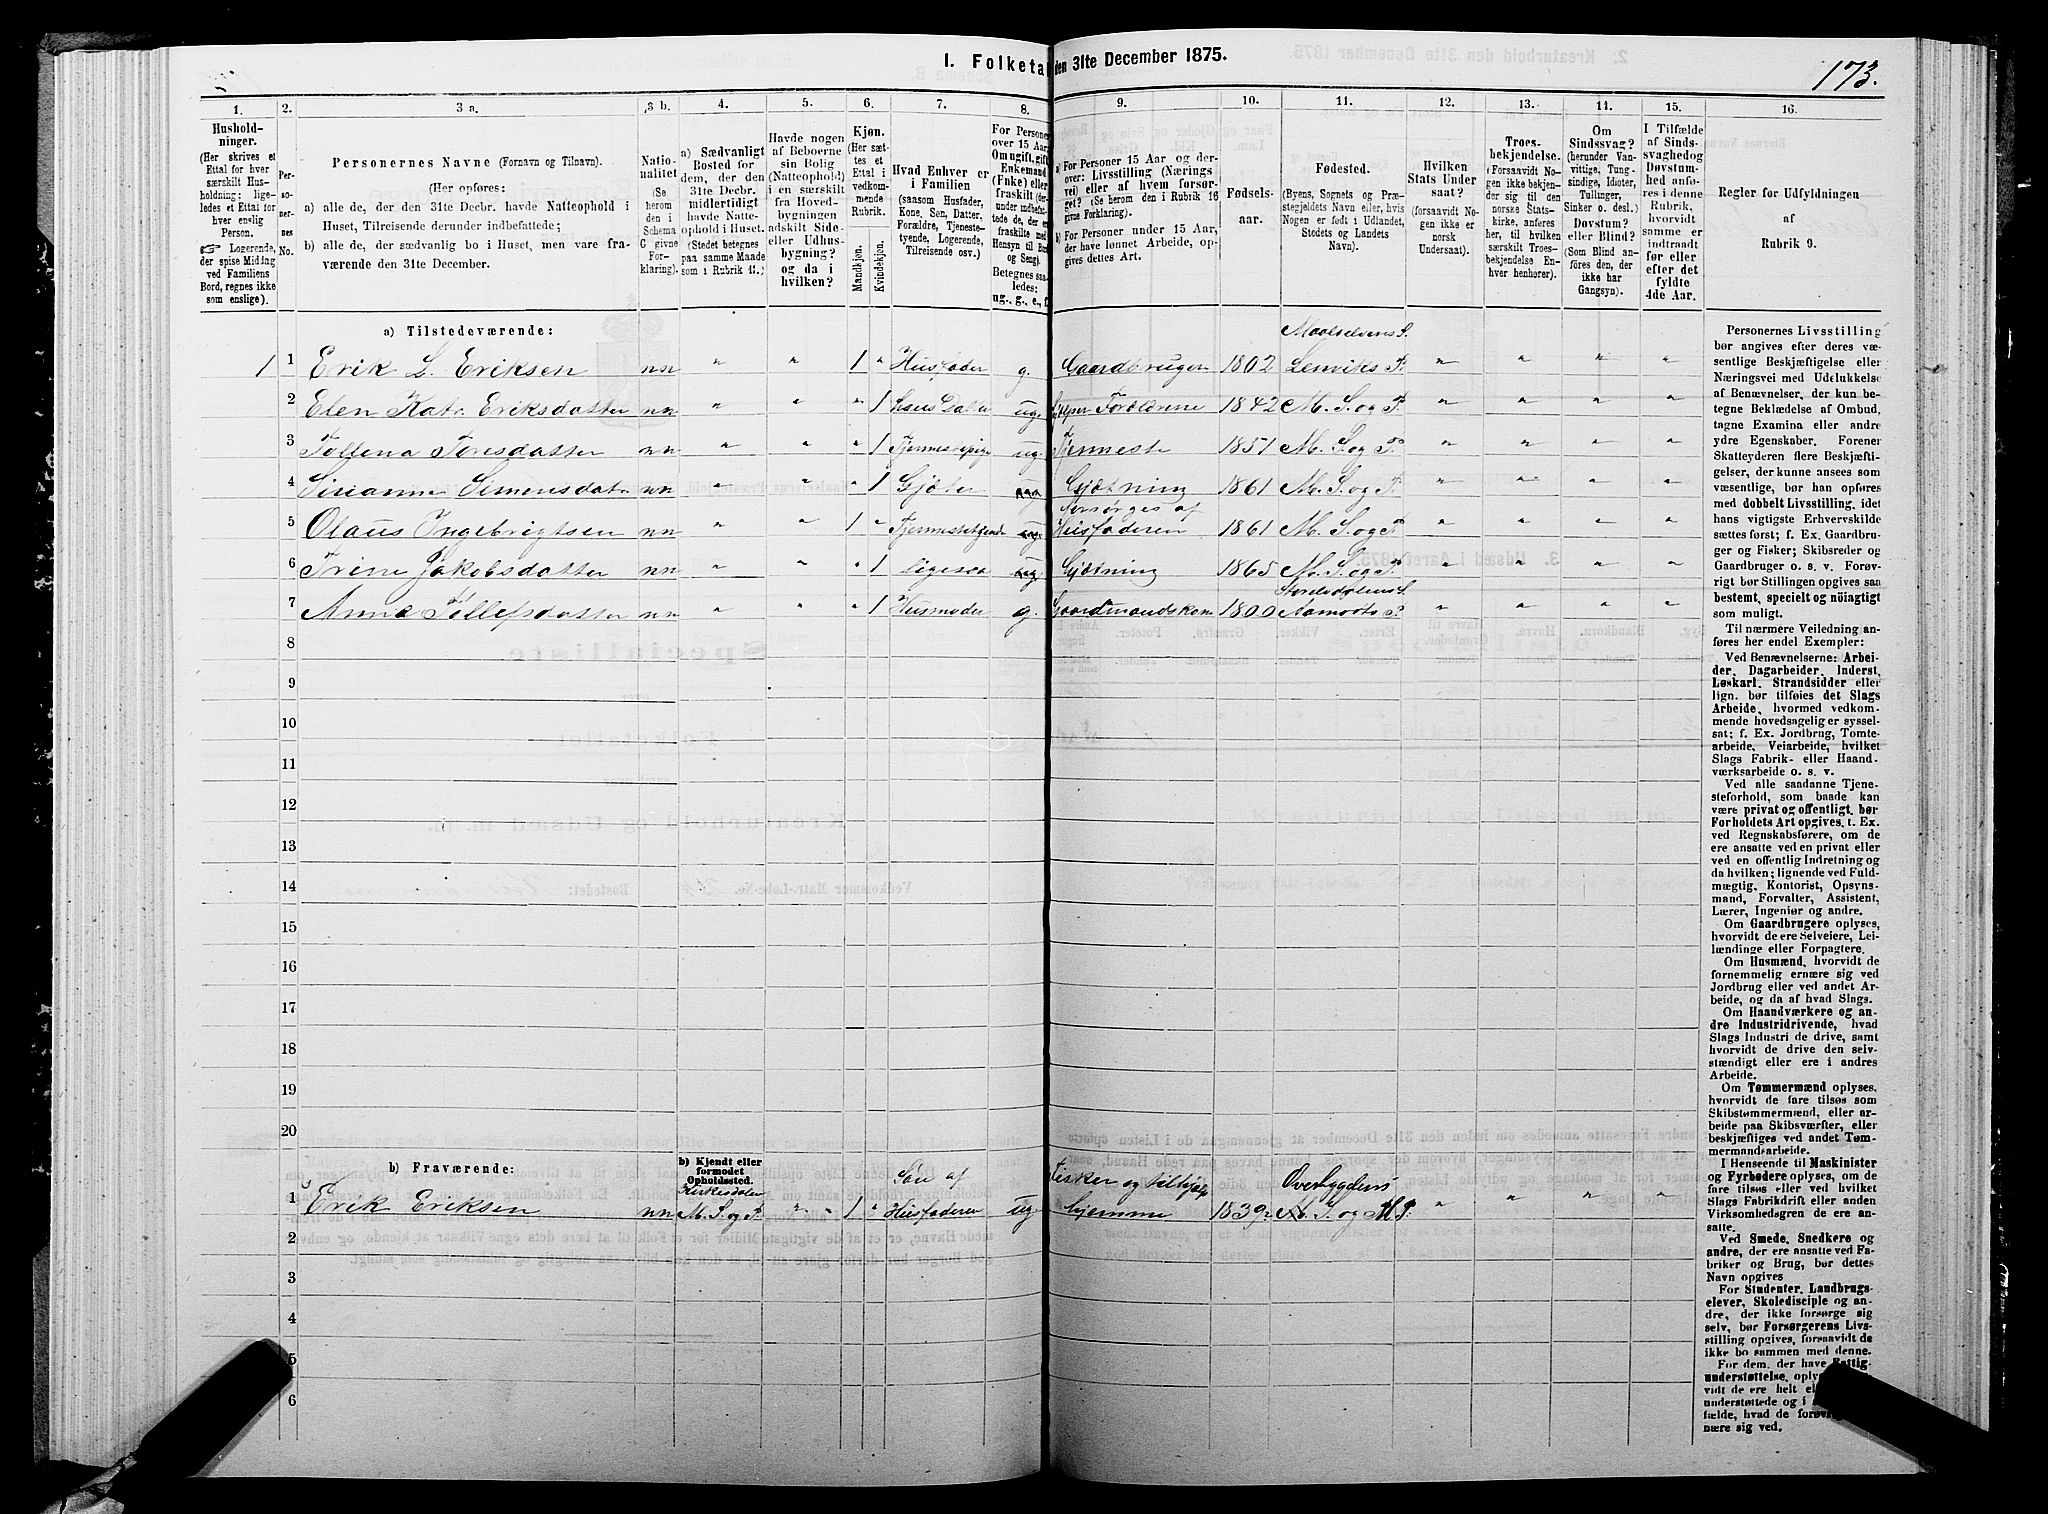 I. Folketa den 31te December 1875.
173.
1. 2. 3 a. 3 b. 4. 5. 6. 7. 8. 9. 10. 11. 12. 13. 14. 15. 16.
Hushold-
ninger.
(Her skrives et
Ettal for hver
særskilt Hus-
holdning; lige-
ledes et Ettal for
hver enslig
Person.
Logerende,
der spise Middag
ved Familiens
Bord, regnes ikke
som enslige).
Per-
so-
ner-
nes
No.
Personernes Navne (Fornavn og Tilnavn).
(Her opføres:
a) alle de, der den 31te Decbr. havde Natteophold i
Huset, Tilreisende derunder indbefattede;
b) alle de, der sædvanlig bo i Huset, men vare fra-
værende den 31te December.
Natio-
nalitet
(Se
herom
den i
Schema
C givne
For-
klaring).
a) Sædvanligt
Bosted for
dem, der den
31te Decbr.
midlertidigt
havde Natte-
ophold i Huset.
(Stedet betegnes
paa samme Maade
som i Rubrik 11.)
Havde nogen
af Beboerne
sin Bolig
(Natteophold)
i en særskilt
fra Hoved-
bygningen
adskilt Side-
eller Udhus-
bygning?
og da i
hvilken?
Kjøn.
(Her sæt-
tes et
Ettal i
vedkom-
mende
Rubrik.
Mandkjøn.
Kvindekjøn.
Hvad Enhver er
i Familien
(saasom Husfader,
Kone, Søn, Datter,
Forældre, Tjeneste-
tyende, Logerende,
Tilreisende osv.)
For Personer
over 15 Aar:
Om ugift, gift,
Enkemand
(Enke) eller
fraskilt (der-
under indbefat-
tede de, der er
fraskilte med
Hensyn til Bord
og Seng).
Betegnes saa-
ledes:
ug., g., e., f.
a) For Personer 15 Aar og der-
over: Livsstilling (Nærings
vei) eller af hvem forsør-
get? (Se herom den i Rubrik 16
givne Forklaring).
b) For Personer under 15 Aar,
der have lønnet Arbeide, op-
gives dettes Art.
Fødsels-
aar.
Fødested.
(Byens, Sognets og Præ-
stegjeldets Navn eller, hvis
Nogen er født i Udlandet,
Stedets og Landets
Navn).
Hvilken
Stats Under
saat?
(forsaavidt No-
gen ikke er
norsk
Undersaat).
Troes-
bekjendelse.
(Forsaavidt No-
gen ikke bekjen-
der sig til den
norske Stats-
kirke, anføres
her, til hvilken
særskilt Troes-
bekjendelse En-
hver henhører).
Om
Sindssvag?
(herunder Van-
vittige, Tung-
sindige, Idioter,
Tullinger,
Sinker o. desl.)
Døvstum?
eller Blind?
(Som Blind an-
føres den, der
ikke har
Gangsyn).
I Tilfælde
af Sinds-
svaghed og
Døvstum-
hed anfø-
res i denne
Rubrik,
hvorvidt
samme er
indtraadt
før eller
efter det
fyldte
4de Aar.
Regler for Udfyldningen
af
Rubrik 9.
a) Tilstedeværende:
Maalselvens S.
1 1 Erik L. Eriksen nn " " 1 " Husfader g. Gaardbruger 1802 Lenviks P. " " " "
2 Elen Katr. Eriksdatter nn " " " 1 Datter ug. Hjelper Forældrene 1842 M. S. og P. " " " "
3 Tollena Toresdatter nn " " " 1 Tjenestepige ug. Tjeneste 1851 M. S. og P. " " " "
4 Sirianna Simensdat. nn " " " 1 Gjæter ug Gjætning 1861 M. S. og P. " " " "
forsørges af
5 Olaus Ingebrigtsen nn " " 1 " Tjenestetyende ug Husfaderen 1861 M. S. og P. " " " "
6 Trine Jakobsdatter nn " " " 1 ligesaa ug Gjætning 1865 M. S. og P. " " " "
7 Anna Tollefsdatter nn " " " 1 Husmoder g. Gaardmandskone 1800 Aamodts P. " " " "
8
9
10
11
12
13
14
15
16
17
18
19
20
b) Fraværende:
b) Kjendt eller
formodet
Opholdssted.
Kirkesdalen Søn af Fisker og Overbygdens
1 Erik Eriksen nn M. S. og P. " 1 " Husfaderen ug. hjemme 1839 S. og M. P. " " " "
2
3
4
5
6
Personernes Livsstilling
bør angives efter deres væ-
sentlige Beskjæftigelse eller
Næringsvei med Udelukkelse
af Benævnelser, der kun be-
tegne Beklædelse af Ombud,
tagne Examina eller andre
ydre Egenskaber. Forener
Skatteyderen flere Beskjæfti-
gelser, der kunne ansees som
væsentlige, bør han opføres
med dobbelt Livsstilling, idet
hans vigtigste Erhvervskilde
sættes først; f. Ex. Gaardbru-
ger og Fisker; Skibsreder og
Gaardbruger o. s. v. Forøv-
rigt bør Stillingen opgives saa
bestemt, specielt og nöiagtigt
som muligt.
Til nærmere Veiledning an-
føres her endel Exempler:
Ved Benævnelserne: Arbei-
der, Dagarbeider, Inderst,
Løskarl, Strandsidder eller
lign. bør tilføies det Slags
Arbeide, hvormed vedkom-
mende hovedsagelig er syssel-
sat; f. Ex. Jordbrug, Tomte-
arbeide, Veiarbeide, hvilket
Slags Fabrik- eller Haand-
værksarbeide o. s. v.
Ved alle saadanne Tjene-
steforhold, som baade kan
være privat og offentligt, bør
Forholdets Art opgives, t. Ex.
ved Regnskabsførere, om de
ere ansatte ved en privat eller
ved en offentlig Indretning og
da hvilken; lignende ved Fuld-
mægtig, Kontorist, Opsyns-
mand, Forvalter, Assistent,
Lærer, Ingeniør og andre.
Om Gaardbrugere oplyses,
hvorvidt de ere Selveiere, Lei-
lændinge eller Forpagtere.
Om Husmænd, hvorvidt de
fornemmelig ernære sig ved
Jordbrug eller ved andet Ar-
beide, og da af hvad Slags.
Om Haandværkere og an-
dre Industridrivende, hvad
Slags Industri de drive, samt
hvorvidt de drive den selv-
stændigt eller ere i andres
Arbeide.
Om Tømmermænd oplyses,
hvorvidt de fare tilsøs som
Skibstømmermænd, eller ar-
beide paa Skibsværfter, eller
beskjæftiges ved andet Tøm-
mermandsarbeide.
I Henseende til Maskinister
og Fyrbødere oplyses, om de
fare tilsøs eller ved hvilket
Slags Fabrikdrift eller anden
Virksomhedsgren de ere an-
satte.
Ved Smede, Snedkere og
andre, der ere ansatte ved Fa-
briker og Brug, bør dettes
Navn opgives
For Studenter, Landbrugs-
elever, Skoledisciple og an-
dre, der ikke forsørge sig
selv, bør Forsørgerens Livs-
stilling opgives, forsaavidt de
ikke bo sammen med denne.
For dem, der have Fattig-
understøttelse, oplyses
vidt de ere helt
understøttede og i
fælde, hvad de
nære sig ved.